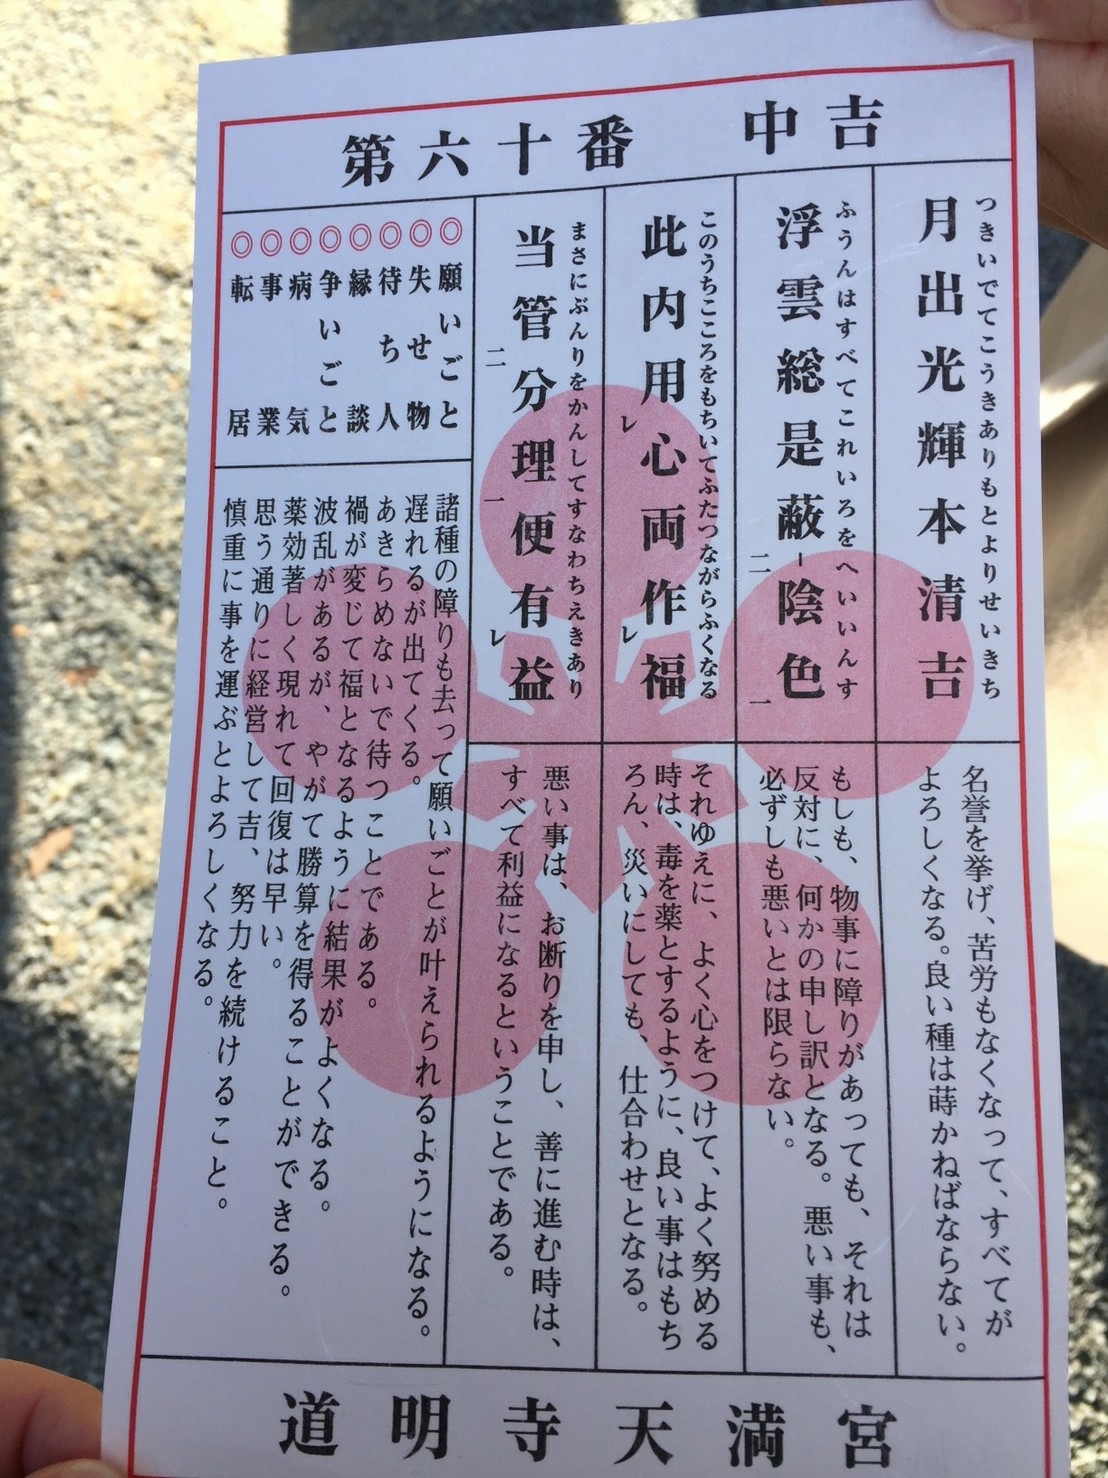 第六十番　中吉
つきいでてこうきありもとよりせいきち
月出光輝本清吉
名誉を挙げ、苦労もなくなって、すべてが
よろしくなる。良い種は蒔かねばならない。
ふうんはすべてこれいろをへいいんす
浮雲総是蔽-陰色
二 一
もしも、物事に障りがあっても、それは
反対に、何かの申し訳となる。悪い事も、
必ずしも悪いとは限らない。
このうちこころをもちいてふたつながらふくなる
此内用心両作福
レ レ
それゆえに、よく心をつけて、よく努める
時は、毒を薬とするように、良い事はもち
ろん、災いにしても、仕合わせとなる。
まさにぶんりをかんしてすなわちえきあり
当管分理便有益
二 一 レ
悪い事は、お断りを申し、善に進む時は、
すべて利益になるということである。
◎願いごと
◎失せ物
◎待ち人
◎縁談
◎争いごと
◎病気
◎事業
◎転居
諸種の障りも去って願いごとが叶えられるようになる。
遅れるが出てくる。
あきらめないで待つことである。
禍が変じて福となるように結果がよくなる。
波乱があるが、やがて勝算を得ることができる。
薬効著しく現れて回復は早い。
思う通りに経営して吉、努力を続けること。
慎重に事を運ぶとよろしくなる。
道明寺天満宮